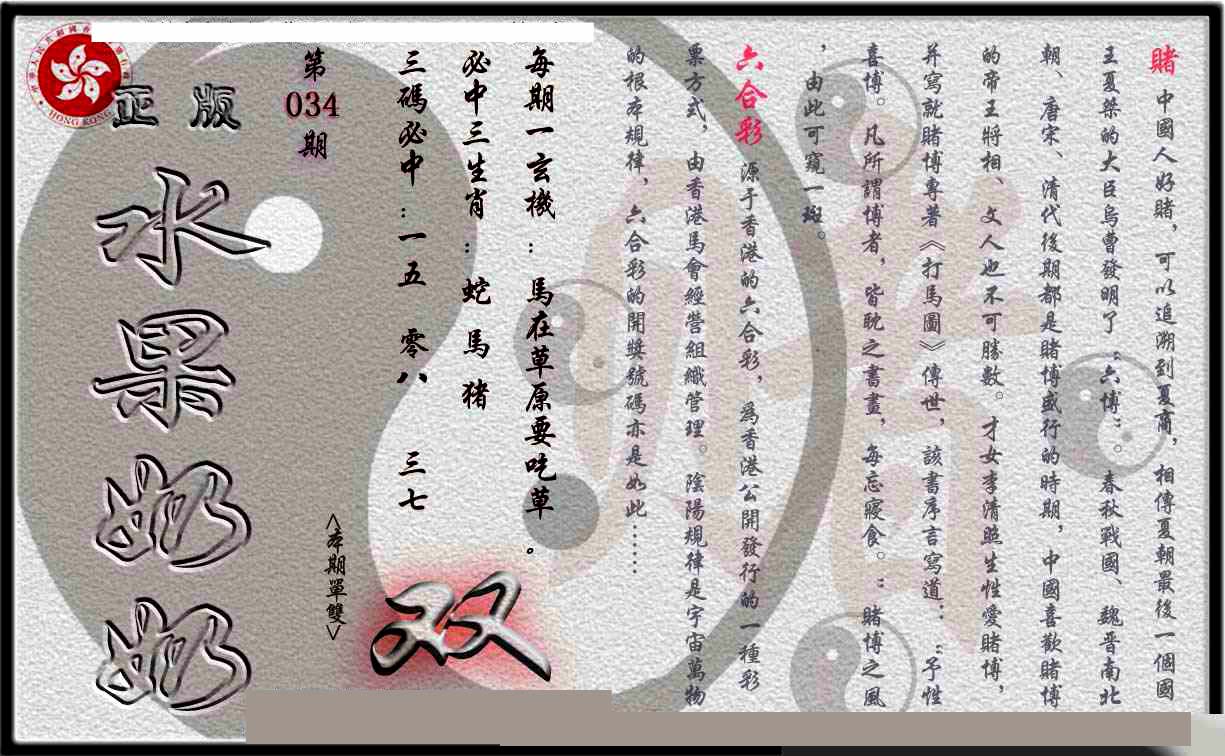 賭 中國人好賭，可以追溯到夏商，相傳夏朝最後一個國
王夏桀的大臣烏曹發明了“六博”。春秋戰國、魏晉南北
朝、唐宋、清代後期都是賭博盛行的時期，中國喜歡賭博
的帝王將相、文人也不可勝數。才女李清照生性愛賭博，
并寫就賭博專著《打馬圖》傳世，該書序言寫道：“予性
喜博。凡所謂博者，皆耽之書畫，每忘寢食。：賭博之風
，由此可窺一斑。
六合彩 源于香港的六合彩，為香港公開發行的一種彩
票方式，由香港馬會經營組織管理。陰陽規律是宇宙萬物
的根本規律，六合彩的開獎號碼亦是如此……
每期一玄機：馬在草原要吃草。
必中三生肖：蛇 馬 猪
三碼必中：一五 零八 三七
<本期單雙>
双
第
034
期
正版
水果奶奶
HONG KONG